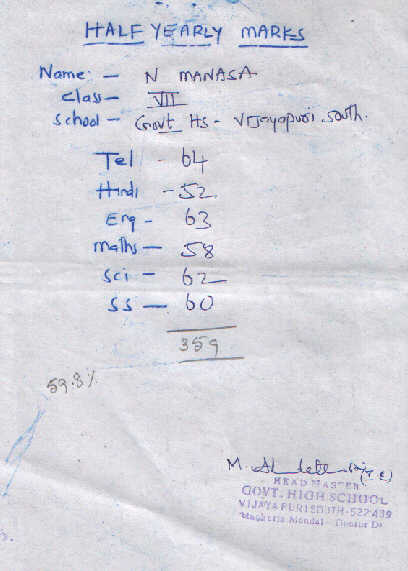 HALF YEARLY MARKS
Name: - N MANASA
class - VII
school - Govt Hs - Vijayapuri south.
Tel - 64
Hindi - 52
Eng - 63
maths - 58
sci - 62
SS - 60
359
59.8%
M.
HEAD MASTER
GOVT. HIGH SCHOOL
VIJAYA PURI SOUTH-522 439
Mandal